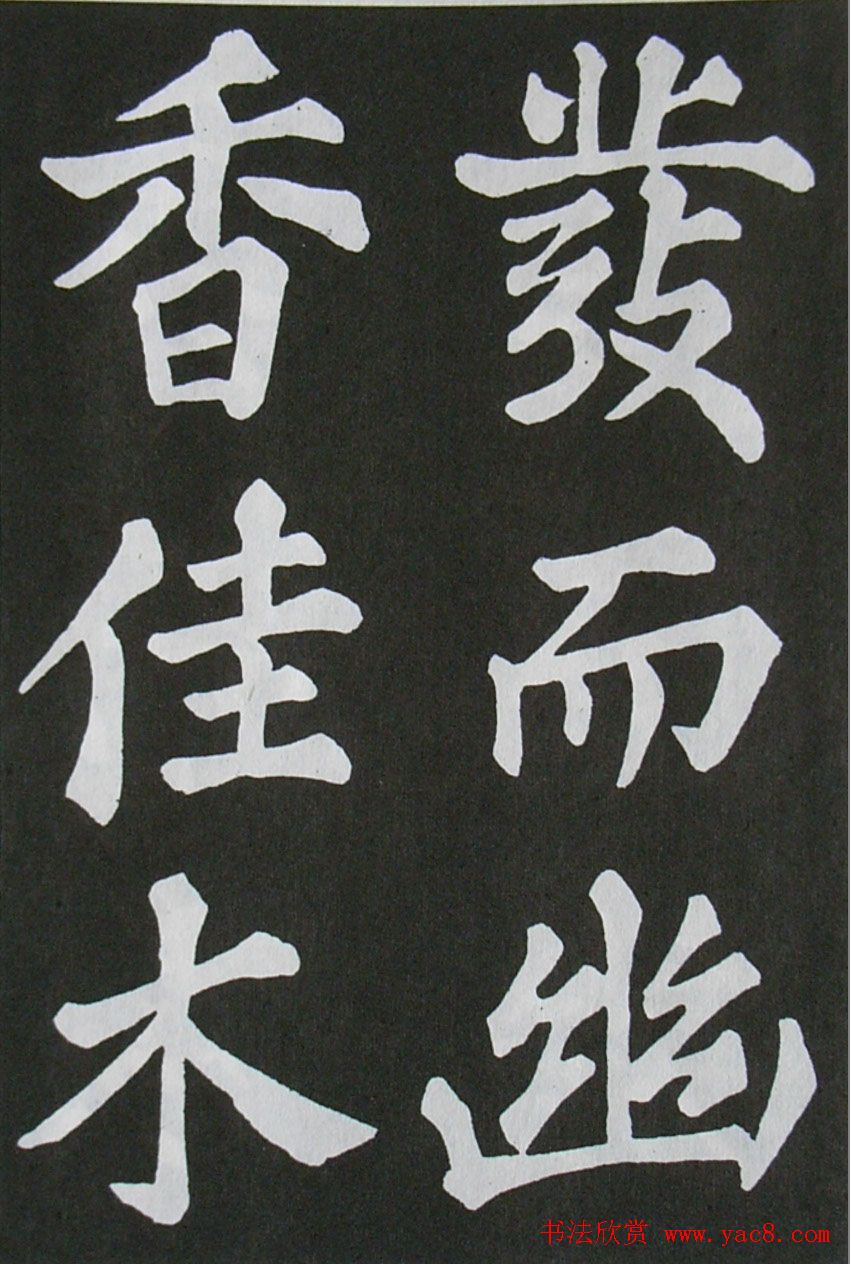 發而幽
香佳木
书法欣赏 www.yac8.com